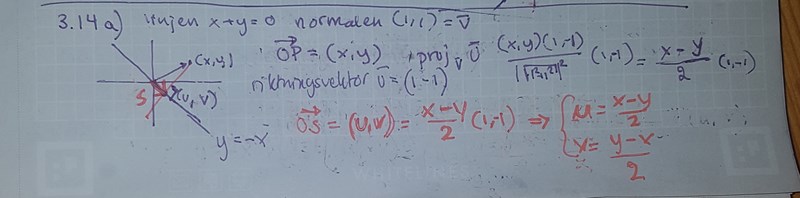 3.14 a) linjen x+y=0 normalen (1,1)=v̄
(x,y) OP⃗ = (x,y) , proj_v ū (x,y)(1,-1) / |√1²+1²|² (1,-1) = x-y / 2 (1,-1)
S (u,v) riktningsvektor ū=(1,-1)
OS⃗ = (u,v) = x-y / 2 (1,-1) ⇒ { u = x-y / 2
v = y-x / 2
y=-x